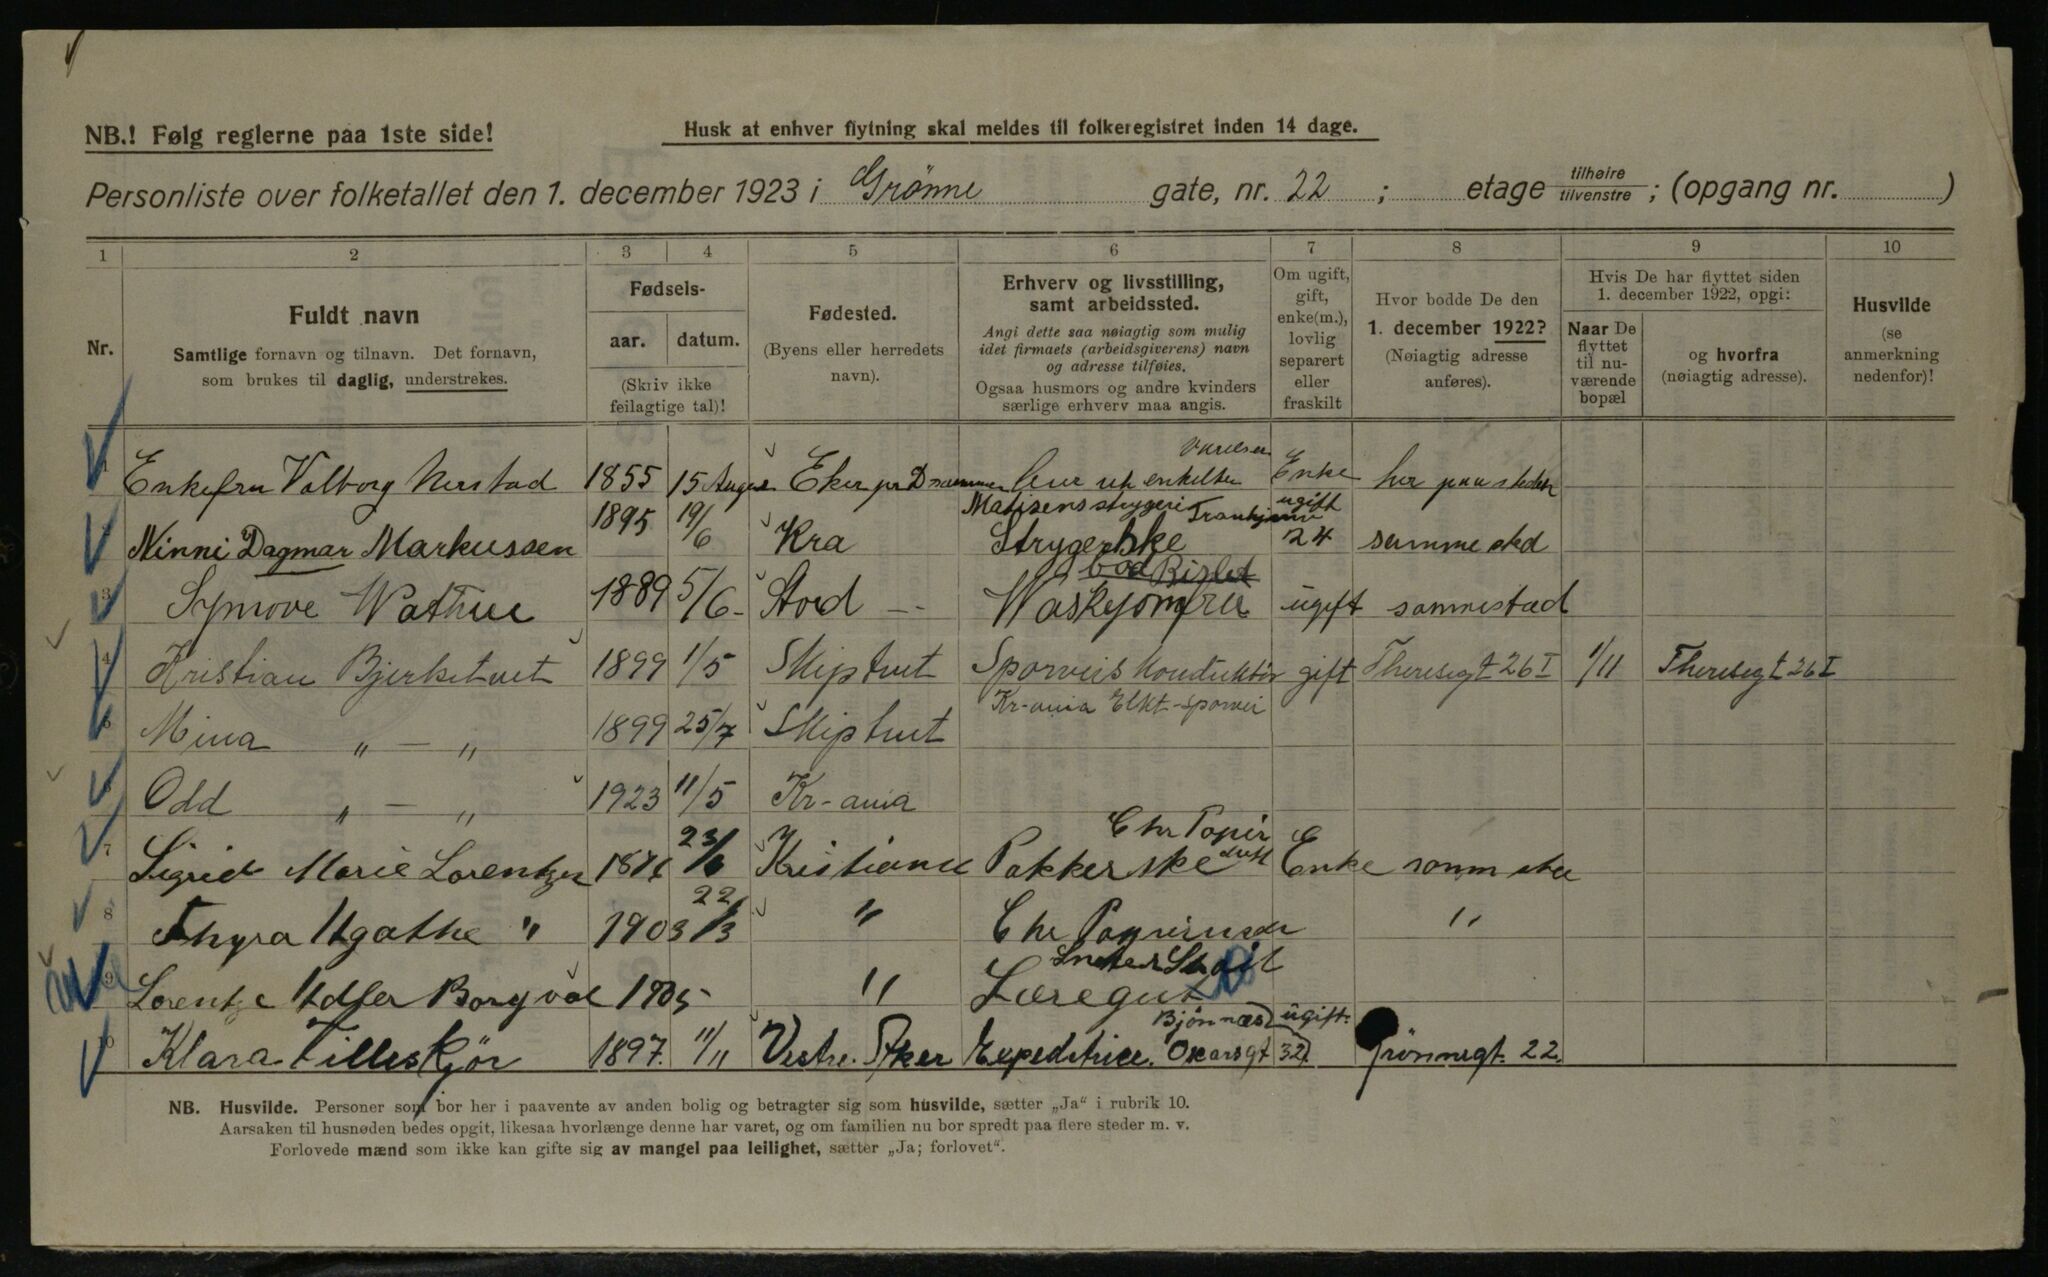 NB.! Følg reglerne paa 1ste side!
Husk at enhver flytning skal meldes til folkeregistret inden 14 dage.
Personliste over folketallet den 1. december 1923 i Grønne gate, nr. 22 ; etage tilhøire tilvenstre ; (opgang nr. )
1 2 3 4 5 6 7 8 9 10
Nr.
Fuldt navn
Samtlige fornavn og tilnavn. Det fornavn,
som brukes til daglig, understrekes.
Fødsels-
aar. datum.
(Skriv ikke
feilagtige tal)!
Fødested.
(Byens eller herredets
navn).
Erhverv og livsstilling,
samt arbeidssted.
Angi dette saa nøiagtig som mulig
idet firmaets (arbeidsgiverens) navn
og adresse tilføies.
Ogsaa husmors og andre kvinders
særlige erhverv maa angis.
Om ugift,
gift,
enke(m.),
lovlig
separert
eller
fraskilt
Hvor bodde De den
1. december 1922?
(Nøiagtig adresse
anføres).
Hvis De har flyttet siden
1. december 1922, opgi:
Naar De
flyttet
til nu-
værende
bopæl
og hvorfra
(nøiagtig adresse).
Husvilde
(se
anmerkning
nedenfor)!
Enkefru Valborg 1855 15 August Eker pr Drammen enkelte Værelser Enke her paa stedet
2 Ninni Dagmar Markussen 1895 19/6 Kra Strygerske ugift samme sted
24
3 1889 5/6 - Stord - Vaskejomfru ugift sammestad
bad Bislet
4 Kristian Bjerketvet 1899 1/5 Skiptvet Sporveis Konduktör gift Theresegt 26 I 1/11 Theresegt 26 I
Kr-ania Elkt-sporvei
5 Mina " - " 1899 25/7 Skiptvet
6 Odd " - " 1923 11/5 Kr-ania
7 Sigrid Marie Lorentzen 23/6 Kristiania Pakkerske Chr Papir Enke samm sted
8 Thyra Agathe " 1903 22/3 " Chr "
9 Lorentze Adler 1905 " Læregut
10 Klara Tilleskjör 1897. 11/11 Vestre Aker Expeditrice. Bjönnæs Oscarsgt 32. ugift. Grönnegt. 22.
NB. Husvilde. Personer som bor her i paavente av anden bolig og betragter sig som husvilde, sætter „Ja“ i rubrik 10.
Aarsaken til husnøden bedes opgit, likesaa hvorlænge denne har varet, og om familien nu bor spredt paa flere steder m. v.
Forlovede mænd som ikke kan gifte sig av mangel paa leilighet, sætter „Ja; forlovet“.